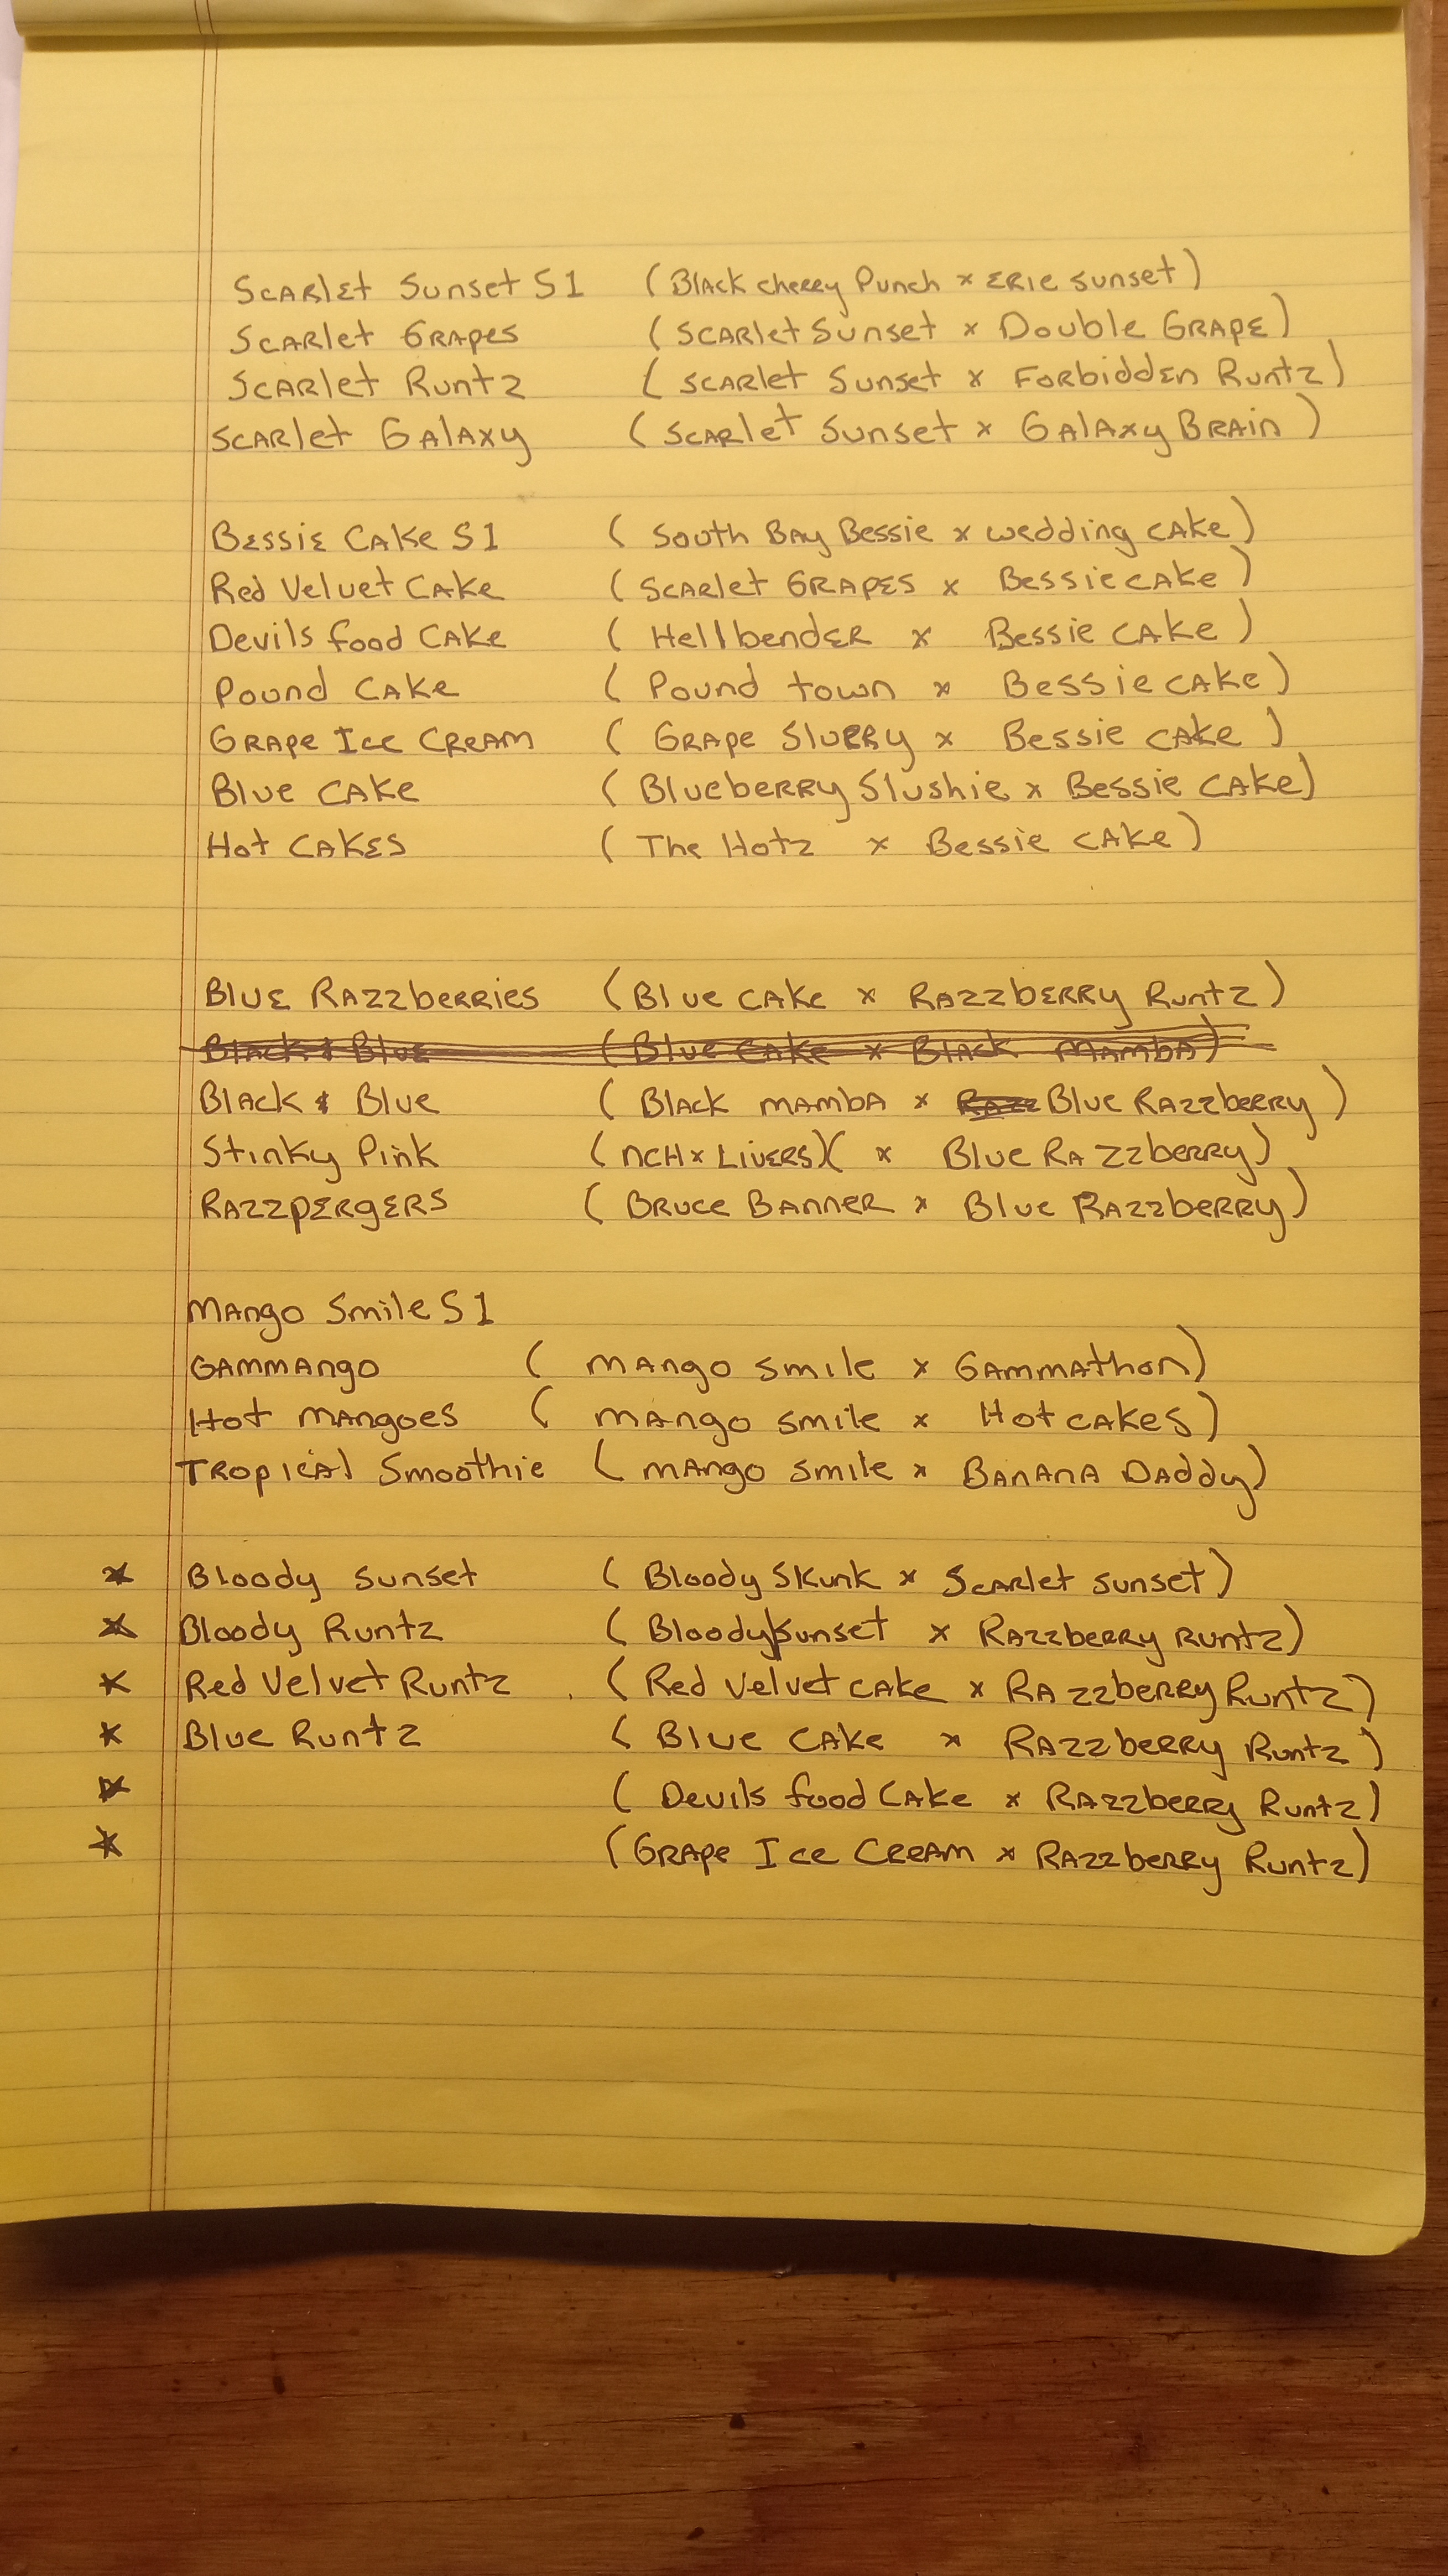 Scarlet Sunset S1 (Black cherry Punch x Erie Sunset)
Scarlet Grapes (Scarlet Sunset x Double Grape)
Scarlet Runtz (Scarlet Sunset x Forbidden Runtz)
Scarlet Galaxy (Scarlet Sunset x Galaxy Brain)
Bessie Cake S1 (South Bay Bessie x wedding cake)
Red Velvet Cake (Scarlet Grapes x Bessie cake)
Devils food Cake (Hellbender x Bessie cake)
Pound Cake (Pound town x Bessie cake)
Grape Ice Cream (Grape Slurry x Bessie cake)
Blue Cake (Blueberry Slushie x Bessie cake)
Hot Cakes (The Hotz x Bessie cake)
Blue Razzberries (Blue Cake x Razzberry Runtz)
Black & Blue (Blue Cake x Black Mamba)
Black & Blue (Black mamba x Razz Blue Razzberry)
Stinky Pink (NCH x Livers)( x Blue Razzberry)
Razzpergers (Bruce Banner x Blue Razzberry)
Mango Smile S1
Gammango (mango smile x Gammathon)
Hot mangoes (mango smile x Hot cakes)
Tropical Smoothie (mango smile x Banana Daddy)
* Bloody Sunset (Bloody Skunk x Scarlet Sunset)
* Bloody Runtz (Bloody Sunset x Razzberry Runtz)
* Red Velvet Runtz (Red Velvet cake x Razzberry Runtz)
* Blue Runtz (Blue Cake x Razzberry Runtz)
* (Devils food Cake x Razzberry Runtz)
* (Grape Ice Cream x Razzberry Runtz)